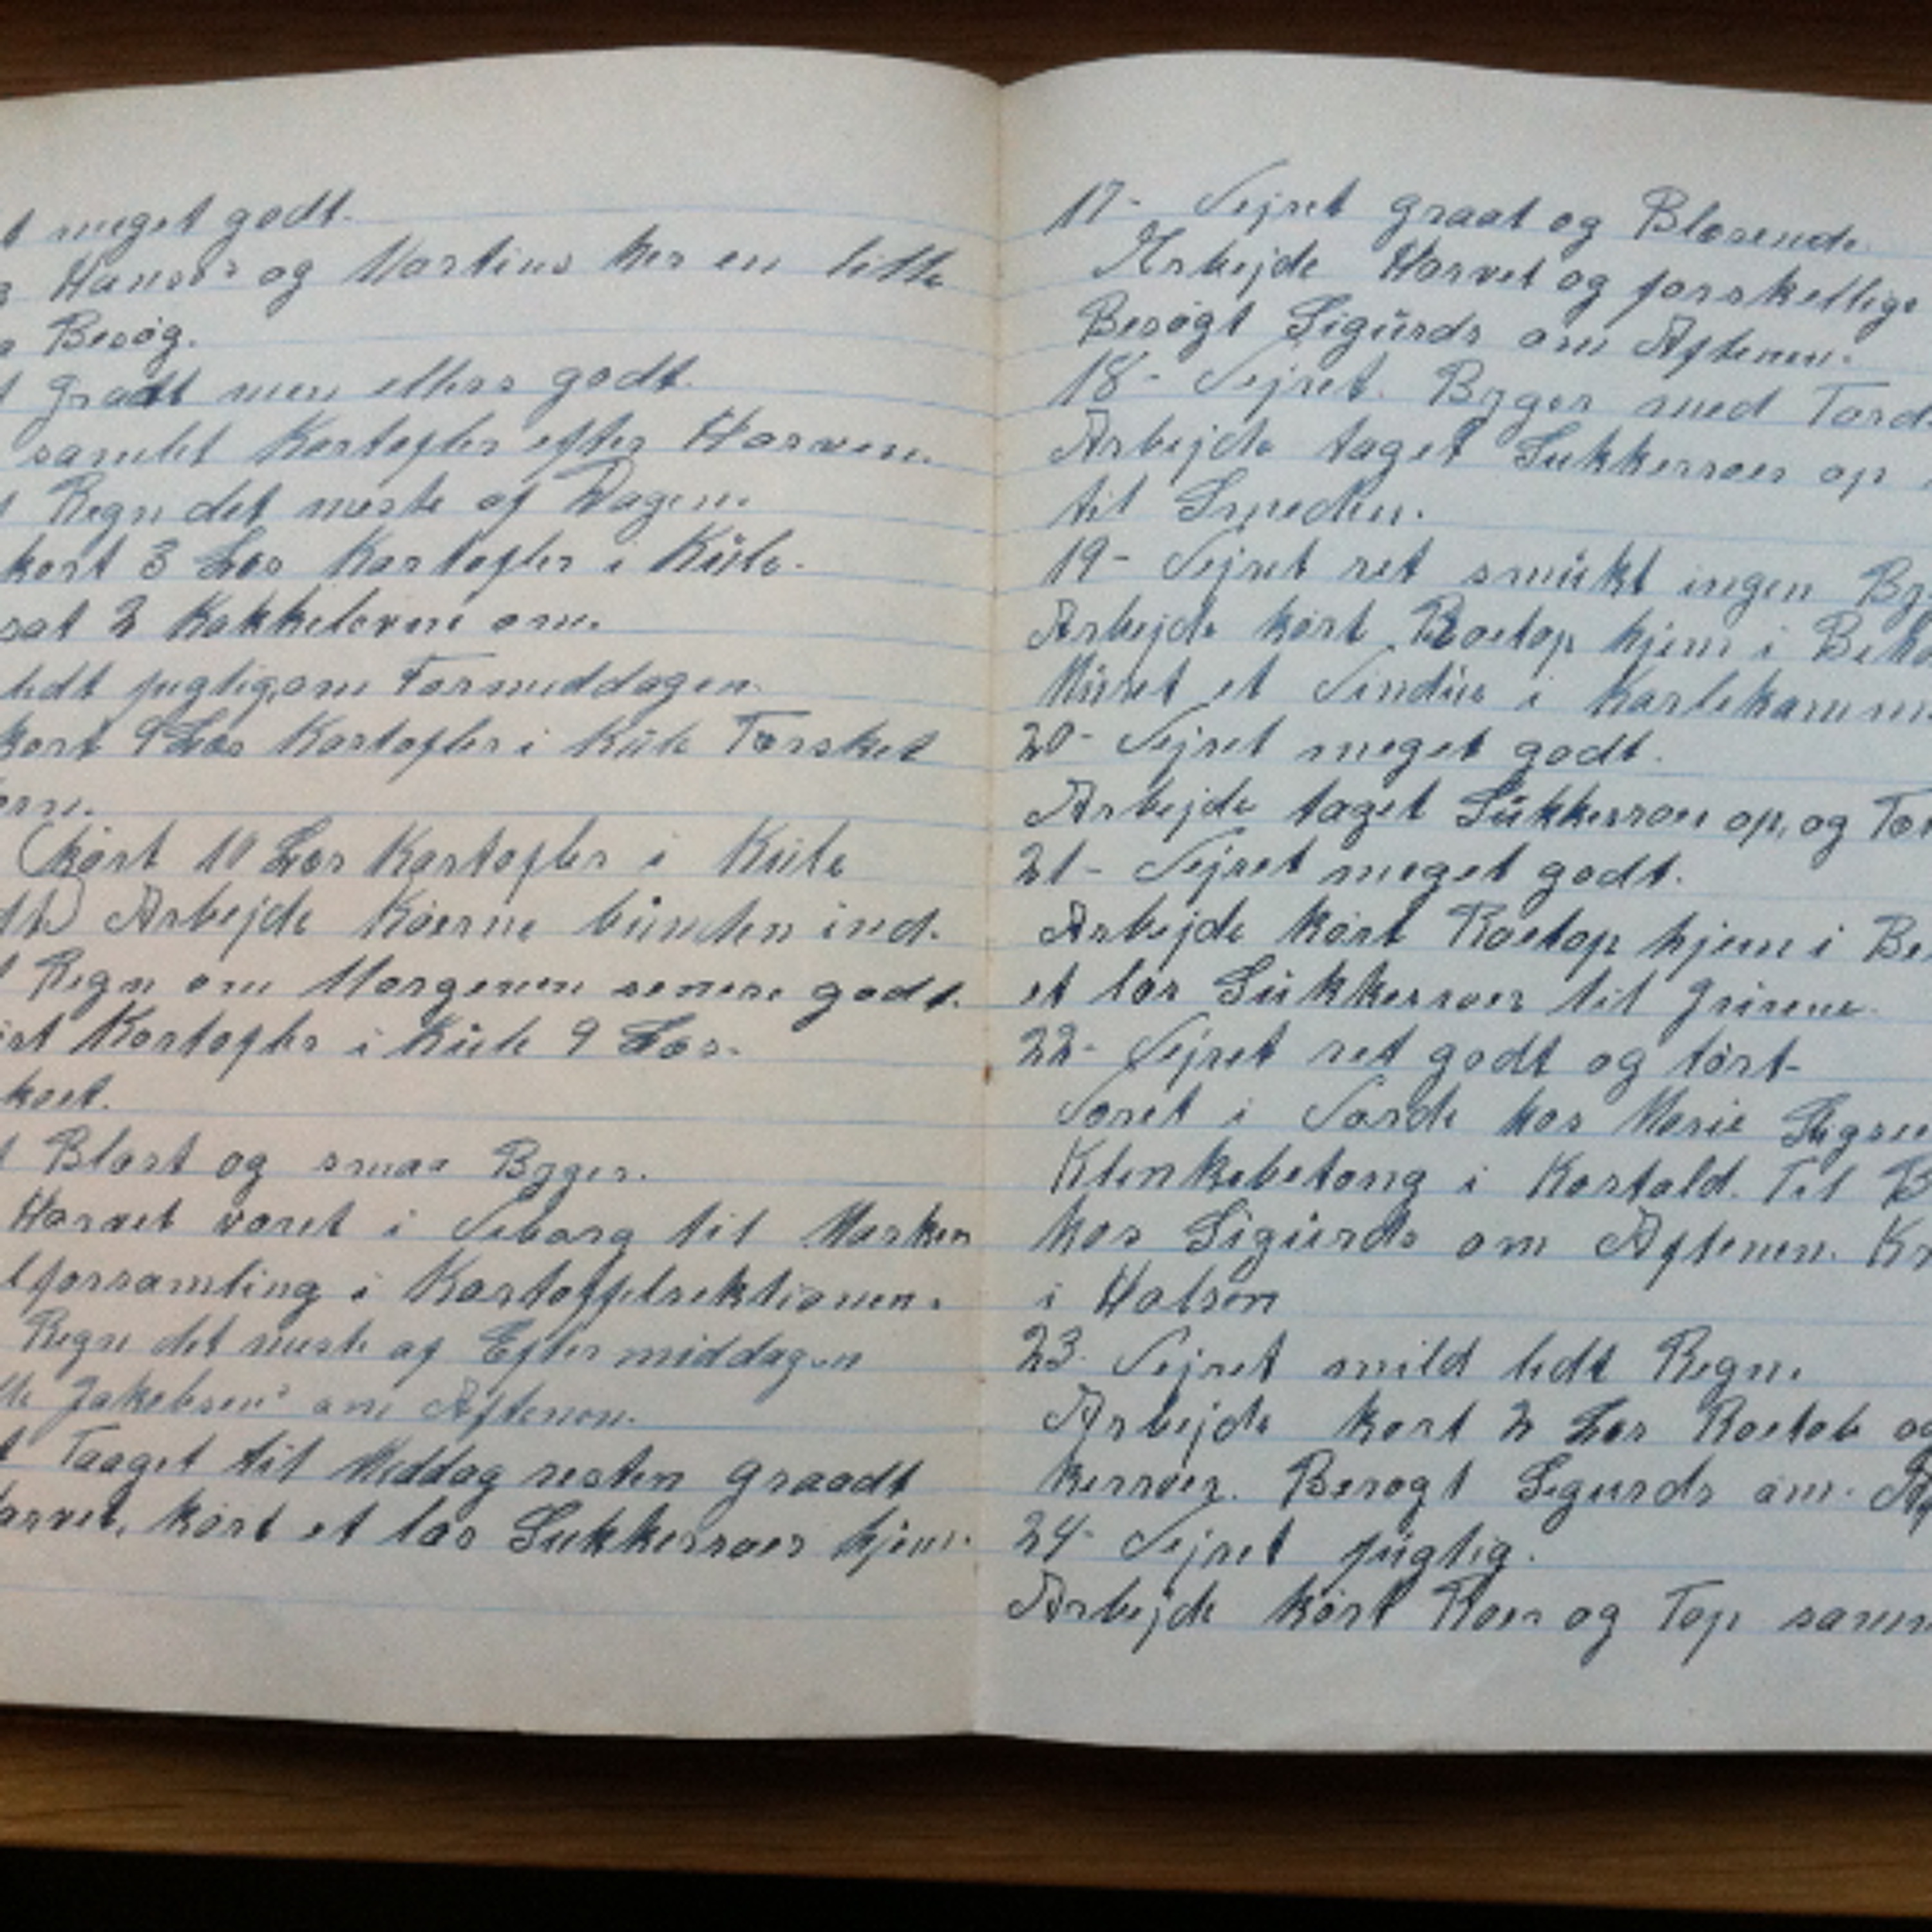 t meget godt.
Hanses og Martins her en lille
Besøg.
t graadt men ellers godt.
samlet Kartofler efter Harven.
t Regn det meste af Dagen.
kørt 3 Læs Kartofler i Kule.
sat 2 Kakkelovne om.
lidt fugtig om Formiddagen.
kørt 9 Læs Kartofler i Kule Tærsket
(kørt 10 Læs Kartofler i Kule
Arbejde Køerne bunden ind.
t Regn om Morgenen senere godt.
Kartofler i Kule 9 Læs.
t Blæst og smaa Byger.
Harvet været i Viborg til Marken
lforsamling i Kartoffelsektionen.
Regn det meste af Eftermiddagen
Jakobsens om Aftenen.
t Taaget til Middag resten graadt
arvet, kørt et læs Sukkerroer hjem.
17- Vejret graat og Blæsende.
Arbejde Harvet og forskellige
Besøgt Sigurds om Aftenen.
18- Vejret Byger med Tord
Arbejde taget Sukkerroer op
til Smeden.
19- Vejret ret smukt ingen By
Arbejde kørt Roetop hjem i Beh
Muret et Vindue i Karlekamm
20- Vejret meget godt.
Arbejde taget Sukkerroer op, og Tær
21- Vejret meget godt.
Arbejde kørt Roetop hjem i Be
et læs Sukkerroer til Grisene.
22- Vejret ret godt og tørt-
Været i Varde hos Marie
Klinkebetong i Kostald. Til B
hos Sigurds om Aftenen. Kr
i Halsen
23. Vejret mild lidt Regn.
Arbejde kørt 2 Læs Roetob og
kerroer. Besøgt Sigurds om Af
24- Vejret fugtig.
Arbejde kørt Roer og Top samm